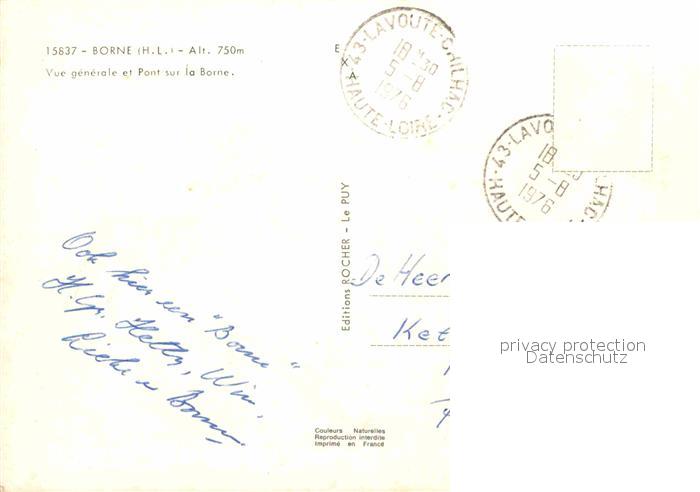 15837 - BORNE (H.L.) - Alt. 750m
Vue générale et Pont sur la Borne.
E
X
A
43-LAVOUTE-CHILHAC
18 H30
5-8
1976
HAUTE-LOIRE
43-LAVO
18 30
5-8
1976
HAUTE
HAC
Editions ROCHER - Le PUY
Ook hier een "Borne"
H. gr. Hetty, Wim,
Lieke en
De Heer
Ket
privacy protection
Datenschutz
Couleurs Naturelles
Reproduction interdite
Imprimé en France